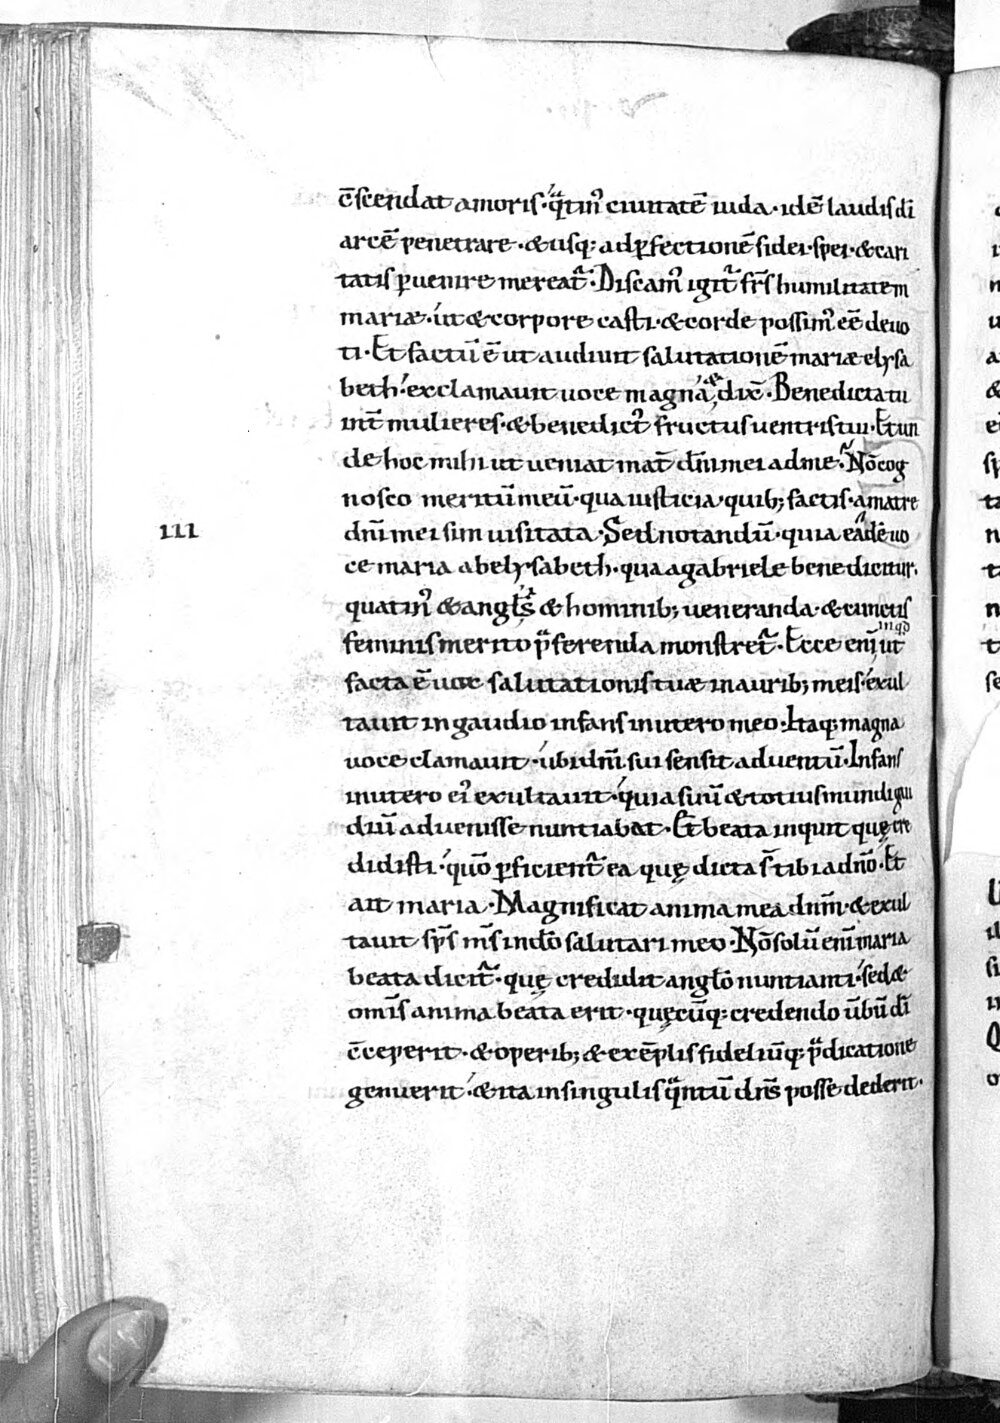 c̄scendat amoris· q̄tin⁹ ciuitatē iuda· idē laudis di
arcē penetrare· & usq; ad ꝑfectionē fidei· spei· & cari
tatis ꝑuenire mereat᷑· Discam⁹ igit᷑ fr̄s humilitatem
mariæ· ut & corpore casti· & corde possim⁹ eē deuo
ti· Et factū ē ut audiuit salutationē mariæ elysa
beth· exclamauit uoce magna, & dix̄· Benedicta tu
int̄ mulieres· & benedict⁹ fructus uentris tui· Et un
de hoc mihi ut ueniat mat̄ dn̄i mei ad me· Nō cog
nosco meritū meū· qua iusticia· quib; factis· a matre
III
dn̄i mei sim uisitata· Sed notandū· quia eadē uo
ce maria ab elysabeth· qua a gabriele benedicitur·
quatin⁹ & angl̄s & hominib; ueneranda· & cunctis
feminis merito p̄ferenda monstret᷑· Ecce eni̅ inq̄d ut
facta ē uox salutationis tuæ in aurib; meis· exul
tauit in gaudio infans in utero meo· Itaq; magna
uoce clamauit· ubi dn̄i sui sensit aduentū· Infans
in utero ei⁹ exultauit· quia suū & totius mundi gau
diū aduenisse nuntiabat· Et beata inquit quę cre
didisti· quō ꝑficient᷑ ea quę dicta s̄t tibi a dn̄o· Et
ait maria· Magnificat anima mea dn̄m· & exul
tauit sp̄s m̄s in dō salutari meo· Nō solū eni̅ maria
beata dicit᷑· quę credidit angl̄o nuntianti· sed &
om̄is anima beata erit· quęcūq; credendo ūbū dī
c̄ceperit· & operib; & exēplis fideliūq; p̄dicatione
genuerit· & ita in singulis q̄ntū dn̄s posse dederit·